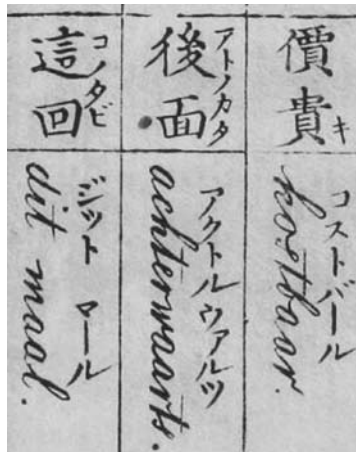 價貴
キ
コストバール
kostbaar.
後面
アトノカタ
アクトルウアルツ
achterwaarts.
這回
コノタビ
ジット マール
dit maal.